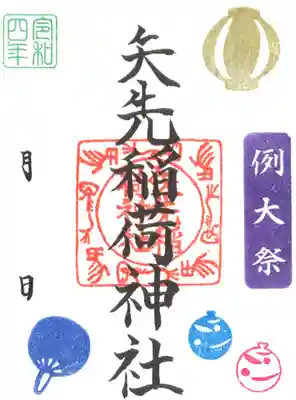 例大祭
矢先稲荷神社
令和
四年
月　日